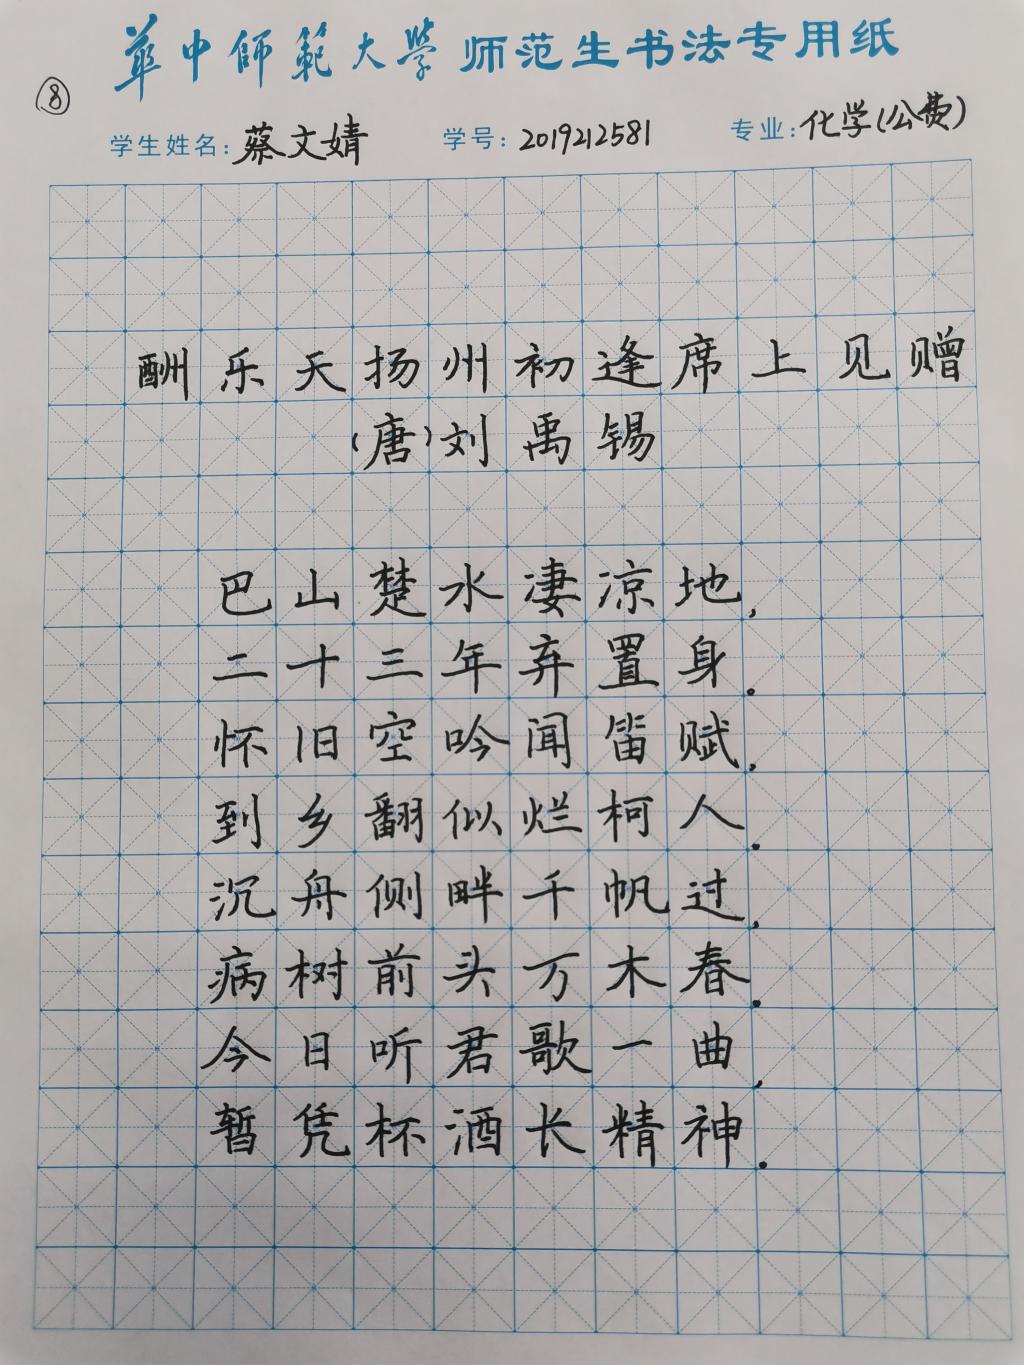 華中師範大學 师范生书法专用纸
⑧
学生姓名：蔡文婧 学号：2019212581 专业：化学(公费)
酬乐天扬州初逢席上见赠
(唐)刘禹锡
巴山楚水凄凉地，
二十三年弃置身。
怀旧空吟闻笛赋，
到乡翻似烂柯人。
沉舟侧畔千帆过，
病树前头万木春。
今日听君歌一曲，
暂凭杯酒长精神。